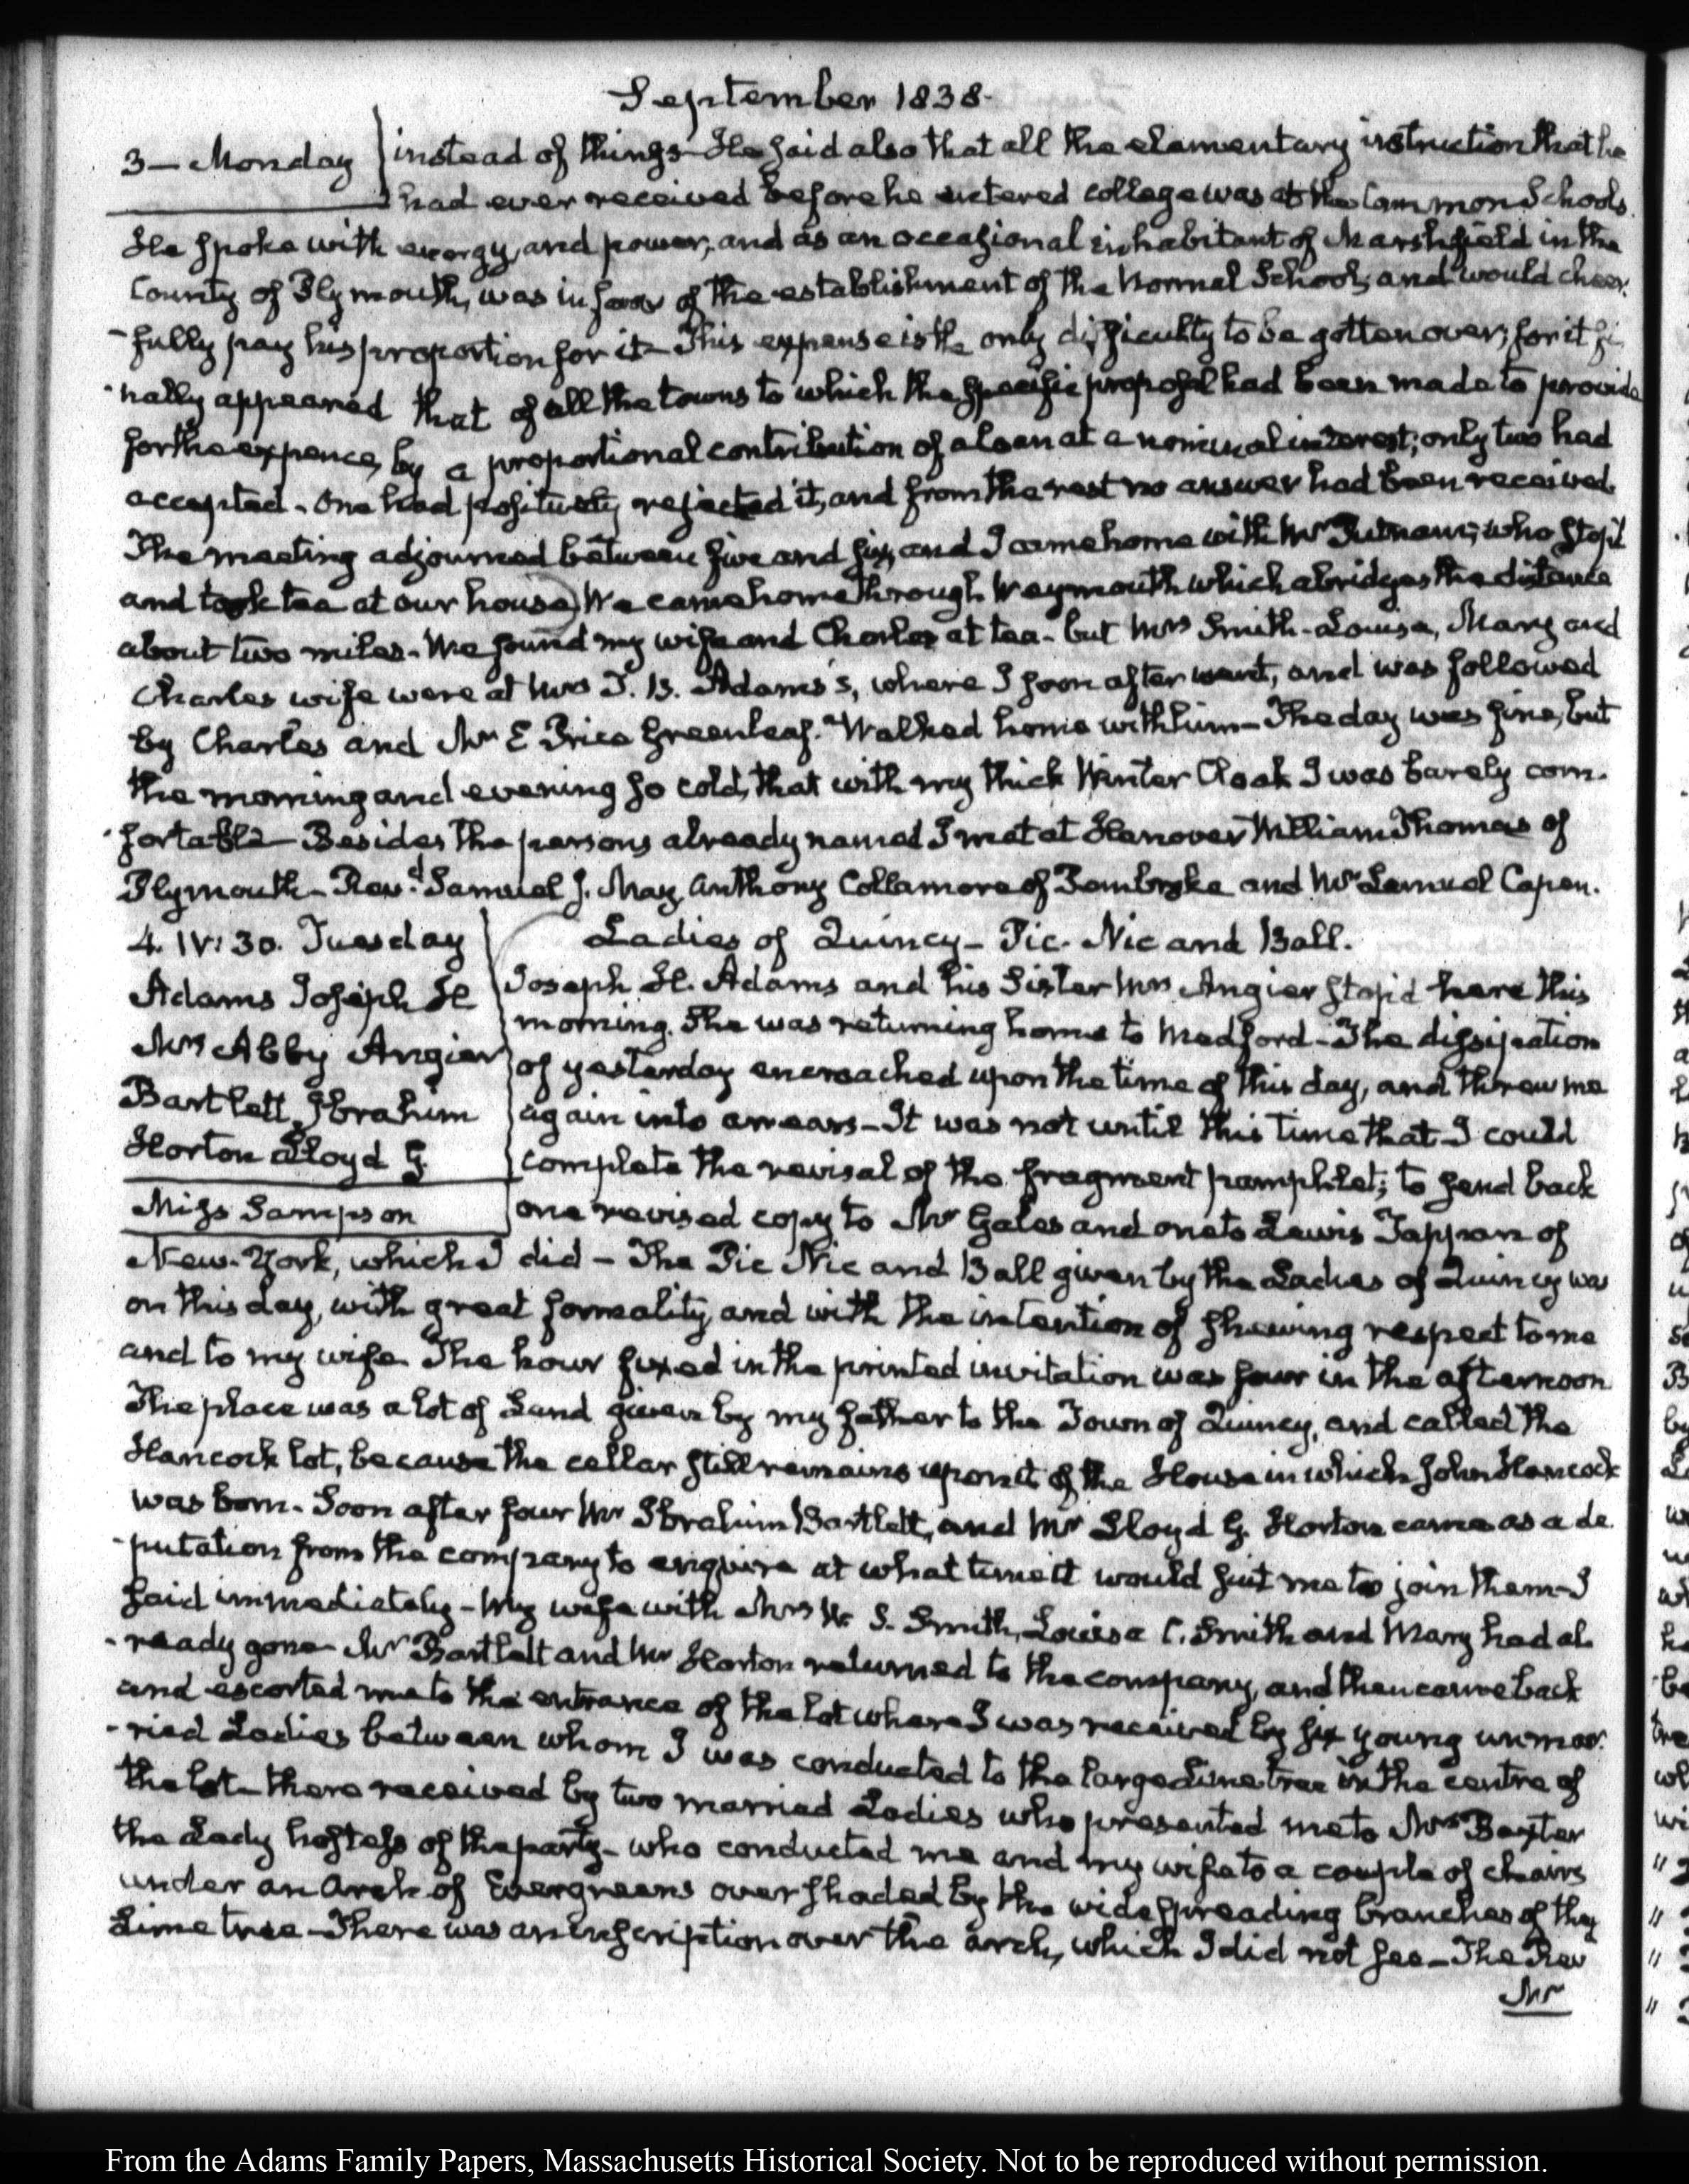 September 1838.
3 — Monday instead of things — He said also that all the elementary instruction that he
had ever received before he entered college was at the Common Schools.
He spoke with energy, and power, and as an occasional inhabitant of Marshfield in the
County of Plymouth, was in favor of the establishment of the Normal School, and would cheer-
-fully pay his proportion for it — This expense is the only difficulty to be gotten over; for it fi-
-nally appeared that of all the towns to which the specific proposal had been made to provide
for the expence, by a proportional contribution of a loan at a nominal interest; only two had
accepted - One had positively rejected it, and from the rest no answer had been received.
The meeting adjourned between five and six, and I came home with Mr Putnam, who stop'd
and took tea at our house) We came home through Weymouth which abridges the distance
about two miles - We found my wife and Charles at tea - but Mrs Smith - Louisa, Mary and
Charles wife were at Mrs T. B. Adams's, where I soon after went, and was followed
by Charles and Mr E Price Greenleaf. Walked home with him — The day was fine, but
the morning and evening so cold, that with my thick Winter Cloak I was barely com-
-fortable — Besides the persons already named I met at Hanover William Thomas of
Plymouth — Revd. Samuel J. May, Anthony Collamore of Pembroke and Mr Lemuel Capen.
4. IV: 30. Tuesday
Adams Joseph H
Mrs Abby Angier
Bartlett, Ibrahim
Horton Lloyd G.
Miss Sampson
Ladies of Quincy — Pic. Nic and Ball.
Joseph H. Adams and his Sister Mrs Angier stop'd here this
morning. She was returning home to Medford — The dissipation
of yesterday encroached upon the time of this day, and threw me
again into arrears — It was not until this time that I could
complete the revisal of the fragment pamphlet; to send back
one revised copy to Mr Gales and one to Lewis Tappan of
New-York, which I did — The Pic Nic and Ball given by the Ladies of Quincy was
on this day, with great formality, and with the intention of shewing respect to me
and to my wife. The hour fixed in the printed invitation was four in the afternoon
The place was a lot of Land given by my father to the Town of Quincy, and called the
Hancock lot, because the cellar still remains upon it of the House in which John Hancock
was born. Soon after four Mr Ibrahim Bartlett, and Mr Lloyd G. Horton came as a de-
-putation from the company to enquire at what time it would suit me to join them — I
said immediately — My wife with Mrs W. S. Smith, Louisa C. Smith and Mary had al-
-ready gone — Mr Bartlett and Mr Horton returned to the company, and then came back
and escorted me to the entrance of the lot where I was received by six young unmar-
-ried Ladies between whom I was conducted to the large Lime tree in the centre of
the lot — there received by two married Ladies who presented me to Mrs Baxter
the Lady hostess of the party - who conducted me and my wife to a couple of chairs
under an arch of Evergreens overshaded by the wide spreading branches of the
Lime tree — There was an inscription over the arch, which I did not see — The Rev
Mr
From the Adams Family Papers, Massachusetts Historical Society. Not to be reproduced without permission.